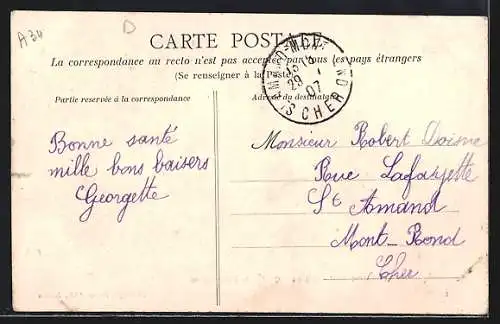 A34
D
CARTE POSTALE
La correspondance au recto n'est pas acceptée par tous les pays étrangers
(Se renseigner à la Poste)
Partie reservée à la correspondance
Adresse du destinataire
CHER
29
07
Bonne santé
mille bons baisers
Georgette
Monsieur Robert
Rue Lafayette
St Amand
Mont-Rond
Cher